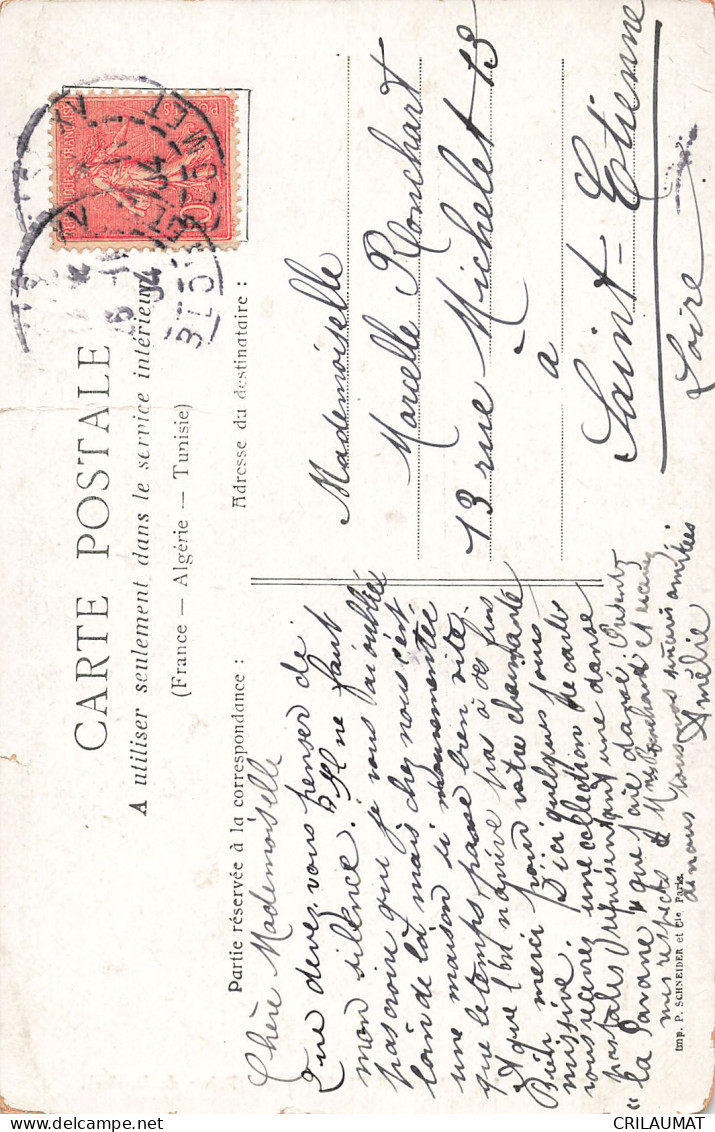 CARTE POSTALE
A utiliser seulement dans le service intérieur
(France — Algérie — Tunisie)
Partie réservée à la correspondance :
Chère Mademoiselle
Que devez vous penser de
mon silence. Il ne faut
pas croire que je vous ai oubliée
loin de là mais chez nous c'est
une maison si mouvementée
que le temps passe bien vite
et que l'on n'arrive pas à ses fins
Bien merci pour votre charmante
missive. D'ici quelques jours
vous recevrez une collection de cartes
postales représentant une danse
"la Pavane" que j'ai dansé. Présentez
mes respects à Mme Ronchart et recevez
de nous tous nos amitiés
Amélie
Imp. P. SCHNEIDER et Cie Paris.
Adresse du destinataire :
Mademoiselle
Marcelle Ronchart
13 rue Michelet 13
à
Saint-Etienne
Loire
delcampe.net
CRILAUMAT